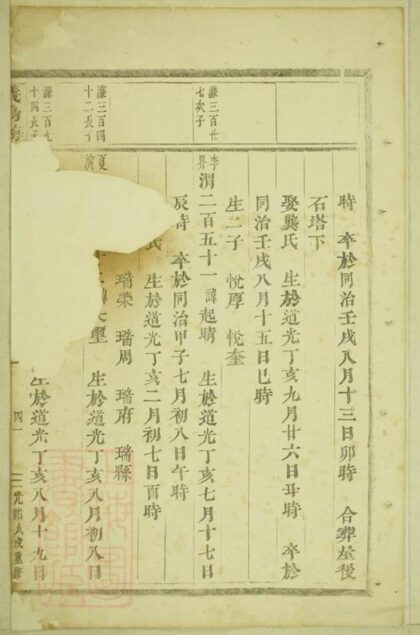 時　卒於同治壬戌八月十三日卯時　合葬屋後
石塔下
娶龔氏　生於道光丁亥九月廿六日丑時　卒於
同治壬戌八月十五日巳時
生二子　悅厚　悅奎
濂三百廿
七次子
渭二百五十一　諱起晴　生於道光丁亥七月十七日
辰時　卒於同治甲子七月初八日午時
氏　生於道光丁亥二月初七日酉時
瑞榮　瑞周　瑞府　瑞縣
濂三百四
十二長子
生於道光丁亥八月初八日
濂三百九
十四長子
生於道光丁亥八月十九日
四一
光緒戊戌重修